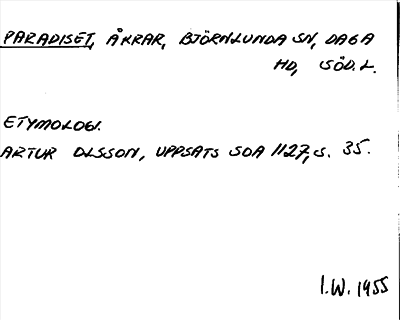 PARADISET, ÅKRAR, BJÖRNLUNDA SN, DAGA
HD, SÖD. L.
ETYMOLOGI.
ARTUR OLSSON, UPPSATS SOA 1127, S. 35.
I.W. 1955